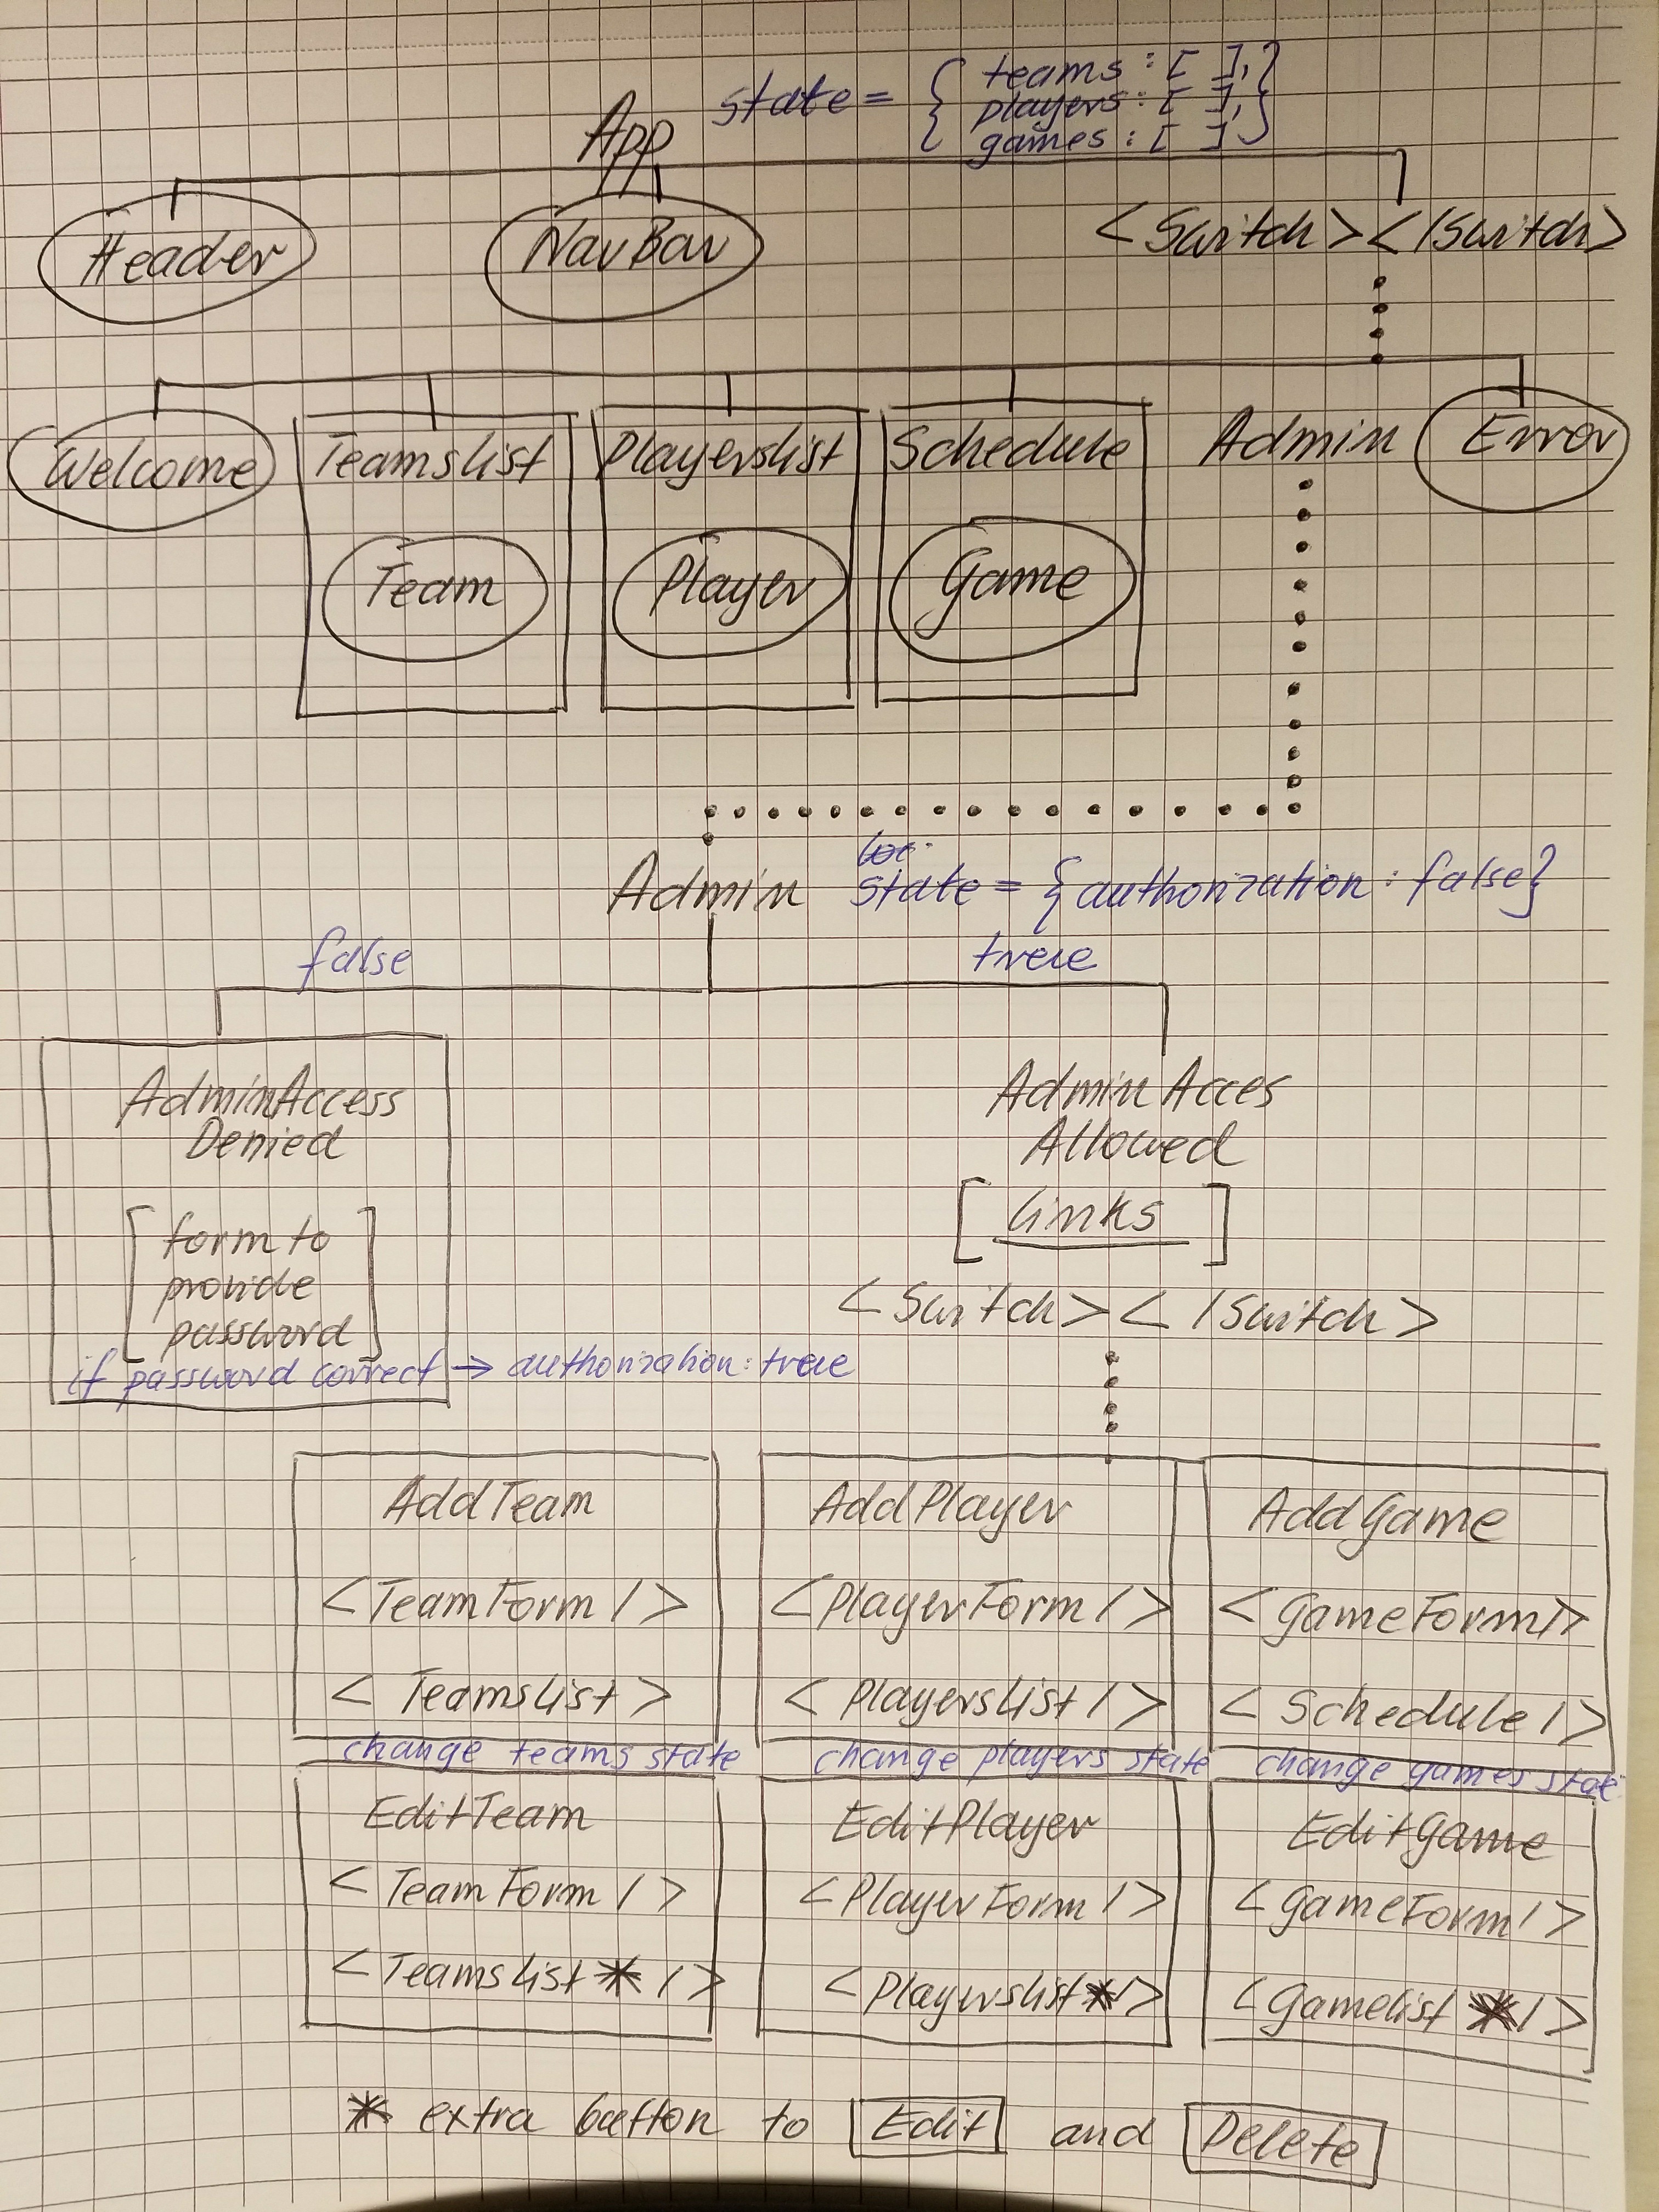 state = { teams : [ ],
players : [ ],
games : [ ] }
App
Header
NavBar
<Switch></Switch>
Welcome
TeamsList
PlayersList
Schedule
Admin
Error
Team
Player
Game
loc.
Admin state = {authorization : false}
false
true
AdminAccess
Denied
[form to
provide
password]
if password correct → authorization : true
Admin Acces
Allowed
[links]
<Switch></Switch>
AddTeam
<TeamForm/>
<TeamsList>
change teams state
AddPlayer
<PlayerForm/>
<PlayersList/>
change players state
AddGame
<GameForm/>
<Schedule/>
change games state
EditTeam
<TeamForm/>
<TeamsList*/>
EditPlayer
<PlayerForm/>
<PlayersList*/>
EditGame
<GameForm/>
<GameList*/>
* extra button to Edit and Delete